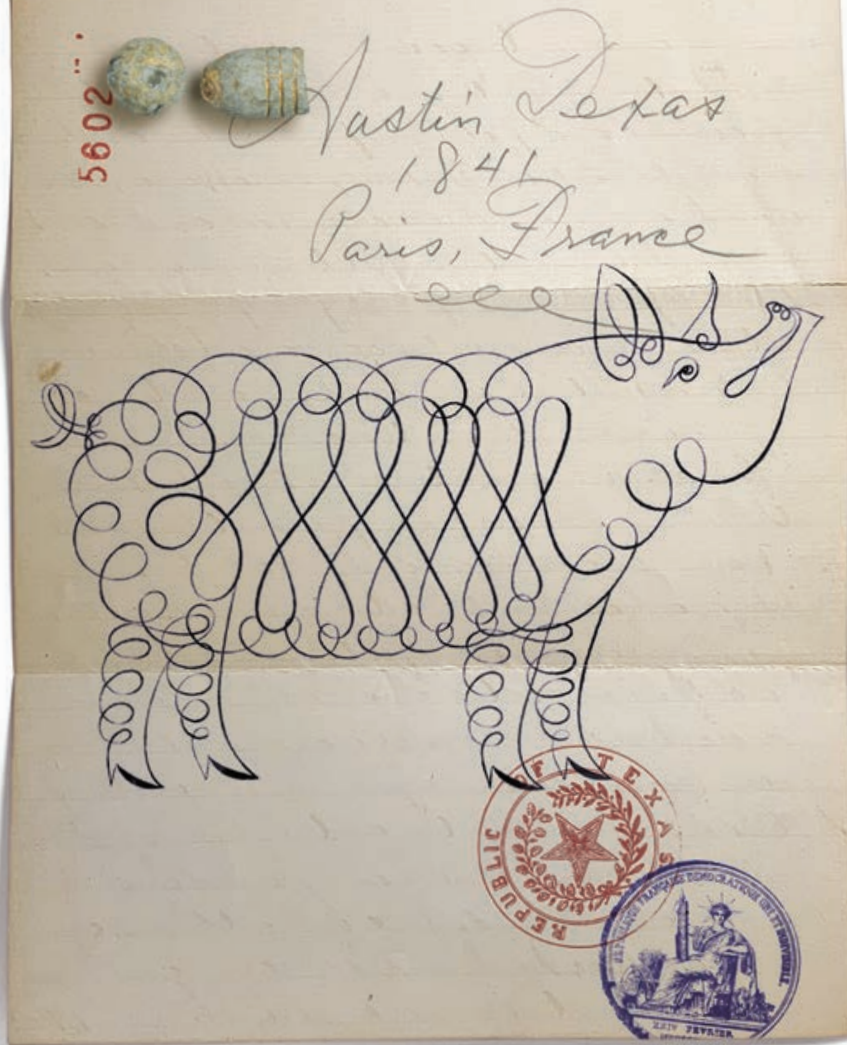 5602
Austin Texas
1841
Paris, France
REPUBLIC OF TEXAS
REPUBLIQUE FRANÇAISE DEMOCRATIQUE UNE ET INDIVISIBLE.
XXIV FEVRIER